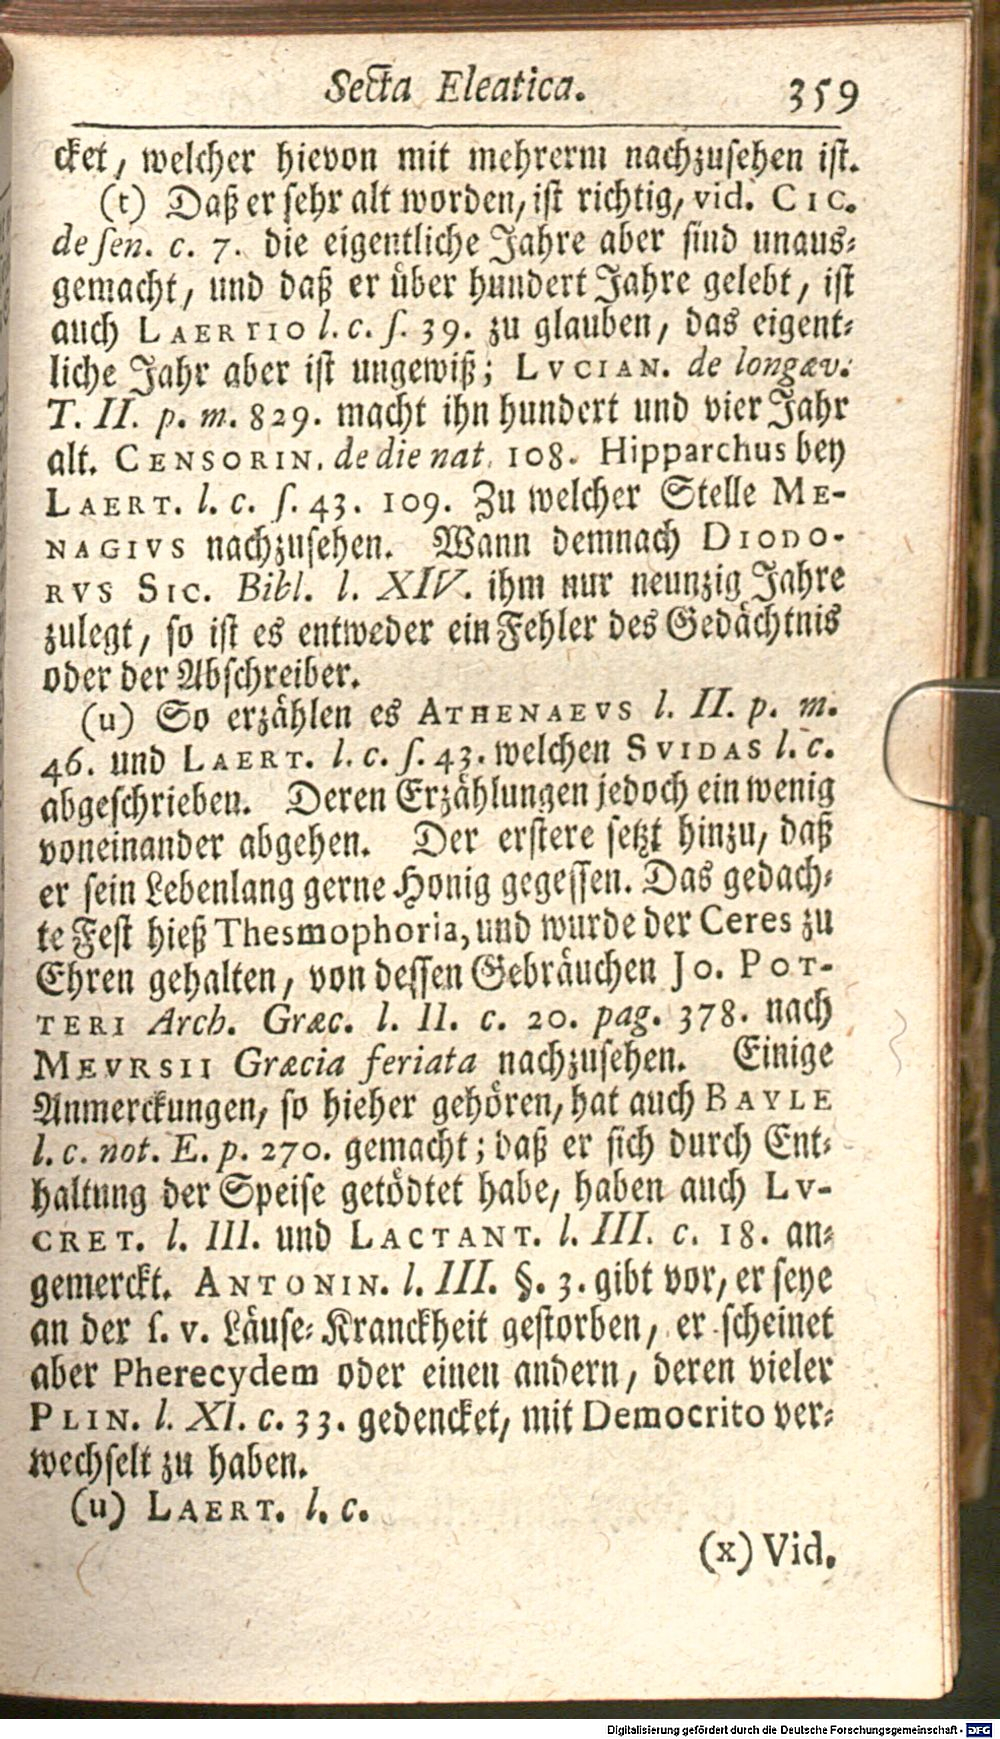 Secta Eleatica. 359
cket, welcher hievon mit mehrerm nachzusehen ist.
(t) Daß er sehr alt worden, ist richtig, vid. CIC.
de sen. c. 7. die eigentliche Jahre aber sind unaus-
gemacht, und daß er über hundert Jahre gelebt, ist
auch LAERTIO l. c. s. 39. zu glauben, das eigent-
liche Jahr aber ist ungewiß; LVCIAN. de longæv.
T. II. p. m. 829. macht ihn hundert und vier Jahr
alt. CENSORIN. de die nat. 108. Hipparchus bey
LAERT. l. c. s. 43. 109. Zu welcher Stelle ME-
NAGIVS nachzusehen. Wann demnach DIODO-
RVS SIC. Bibl. l. XIV. ihm nur neunzig Jahre
zulegt, so ist es entweder ein Fehler des Gedächtnis
oder der Abschreiber.
(u) So erzählen es ATHENAEVS l. II. p. m.
46. und LAERT. l. c. s. 43. welchen SVIDAS l. c.
abgeschrieben. Deren Erzählungen jedoch ein wenig
voneinander abgehen. Der erstere setzt hinzu, daß
er sein Lebenlang gerne Honig gegessen. Das gedach-
te Fest hieß Thesmophoria, und wurde der Ceres zu
Ehren gehalten, von dessen Gebräuchen JO. POT-
TERI Arch. Græc. l. II. c. 20. pag. 378. nach
MEVRSII Græcia feriata nachzusehen. Einige
Anmerckungen, so hieher gehören, hat auch BAYLE
l. c. not. E. p. 270. gemacht; daß er sich durch Ent-
haltung der Speise getödtet habe, haben auch LV-
CRET. l. III. und LACTANT. l. III. c. 18. an-
gemerckt. ANTONIN. l. III. §. 3. gibt vor, er seye
an der s. v. Läuse-Kranckheit gestorben, er scheinet
aber Pherecydem oder einen andern, deren vieler
PLIN. l. XI. c. 33. gedencket, mit Democrito ver-
wechselt zu haben.
(u) LAERT. l. c.
(x) Vid.
Digitalisierung gefördert durch die Deutsche Forschungsgemeinschaft - DFG